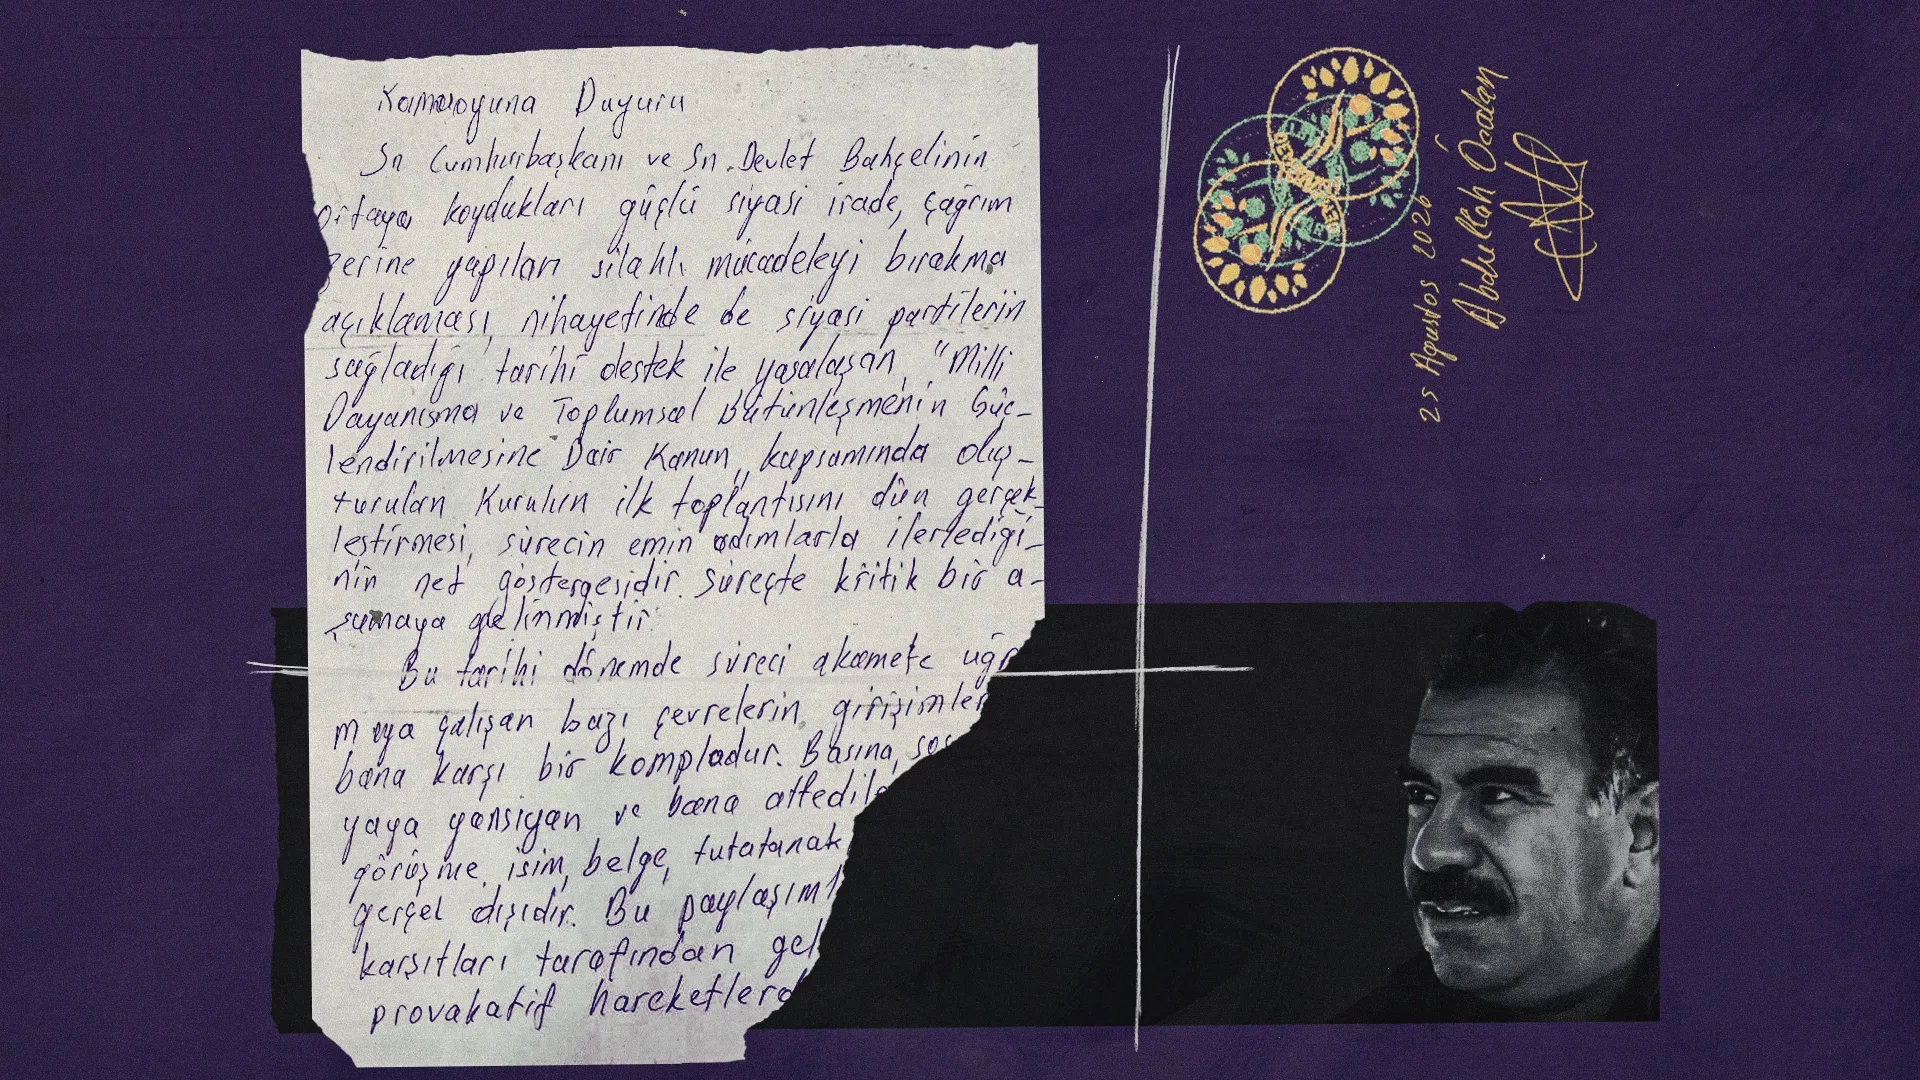 Kamuoyuna Duyuru
Sn Cumhurbaşkanı ve Sn. Devlet Bahçelinin
ortaya koydukları güçlü siyasi irade, çağrım
zerine yapılan silahlı mücadeleyi bırakma
açıklaması, nihayetinde de siyasi partilerin
sağladığı tarihi destek ile yasalaşan "Milli
Dayanışma ve Toplumsal Bütünleşmenin Güç-
lendirilmesine Dair Kanun,, kapsamında oluş-
turulan Kurulun ilk toplantısını dün gerçek-
leştirmesi, sürecin emin adımlarla ilerlediği-
nin net göstergesidir. Süreçte kritik bir a-
şamaya gelinmiştir.
Bu tarihi dönemde süreci akamete uğr
maya çalışan bazı çevrelerin girişimler
bana karşı bir kompladur. Basına, sos
yaya yansıyan ve bana atfedile
görüşme, isim, belge, tutatanak
gerçel dışıdır. Bu paylaşıml
karşıtları tarafından gel
provakatif hareketlerd
DEM PARTİ
25 Ağustos 2026
Abdullah Öcalan